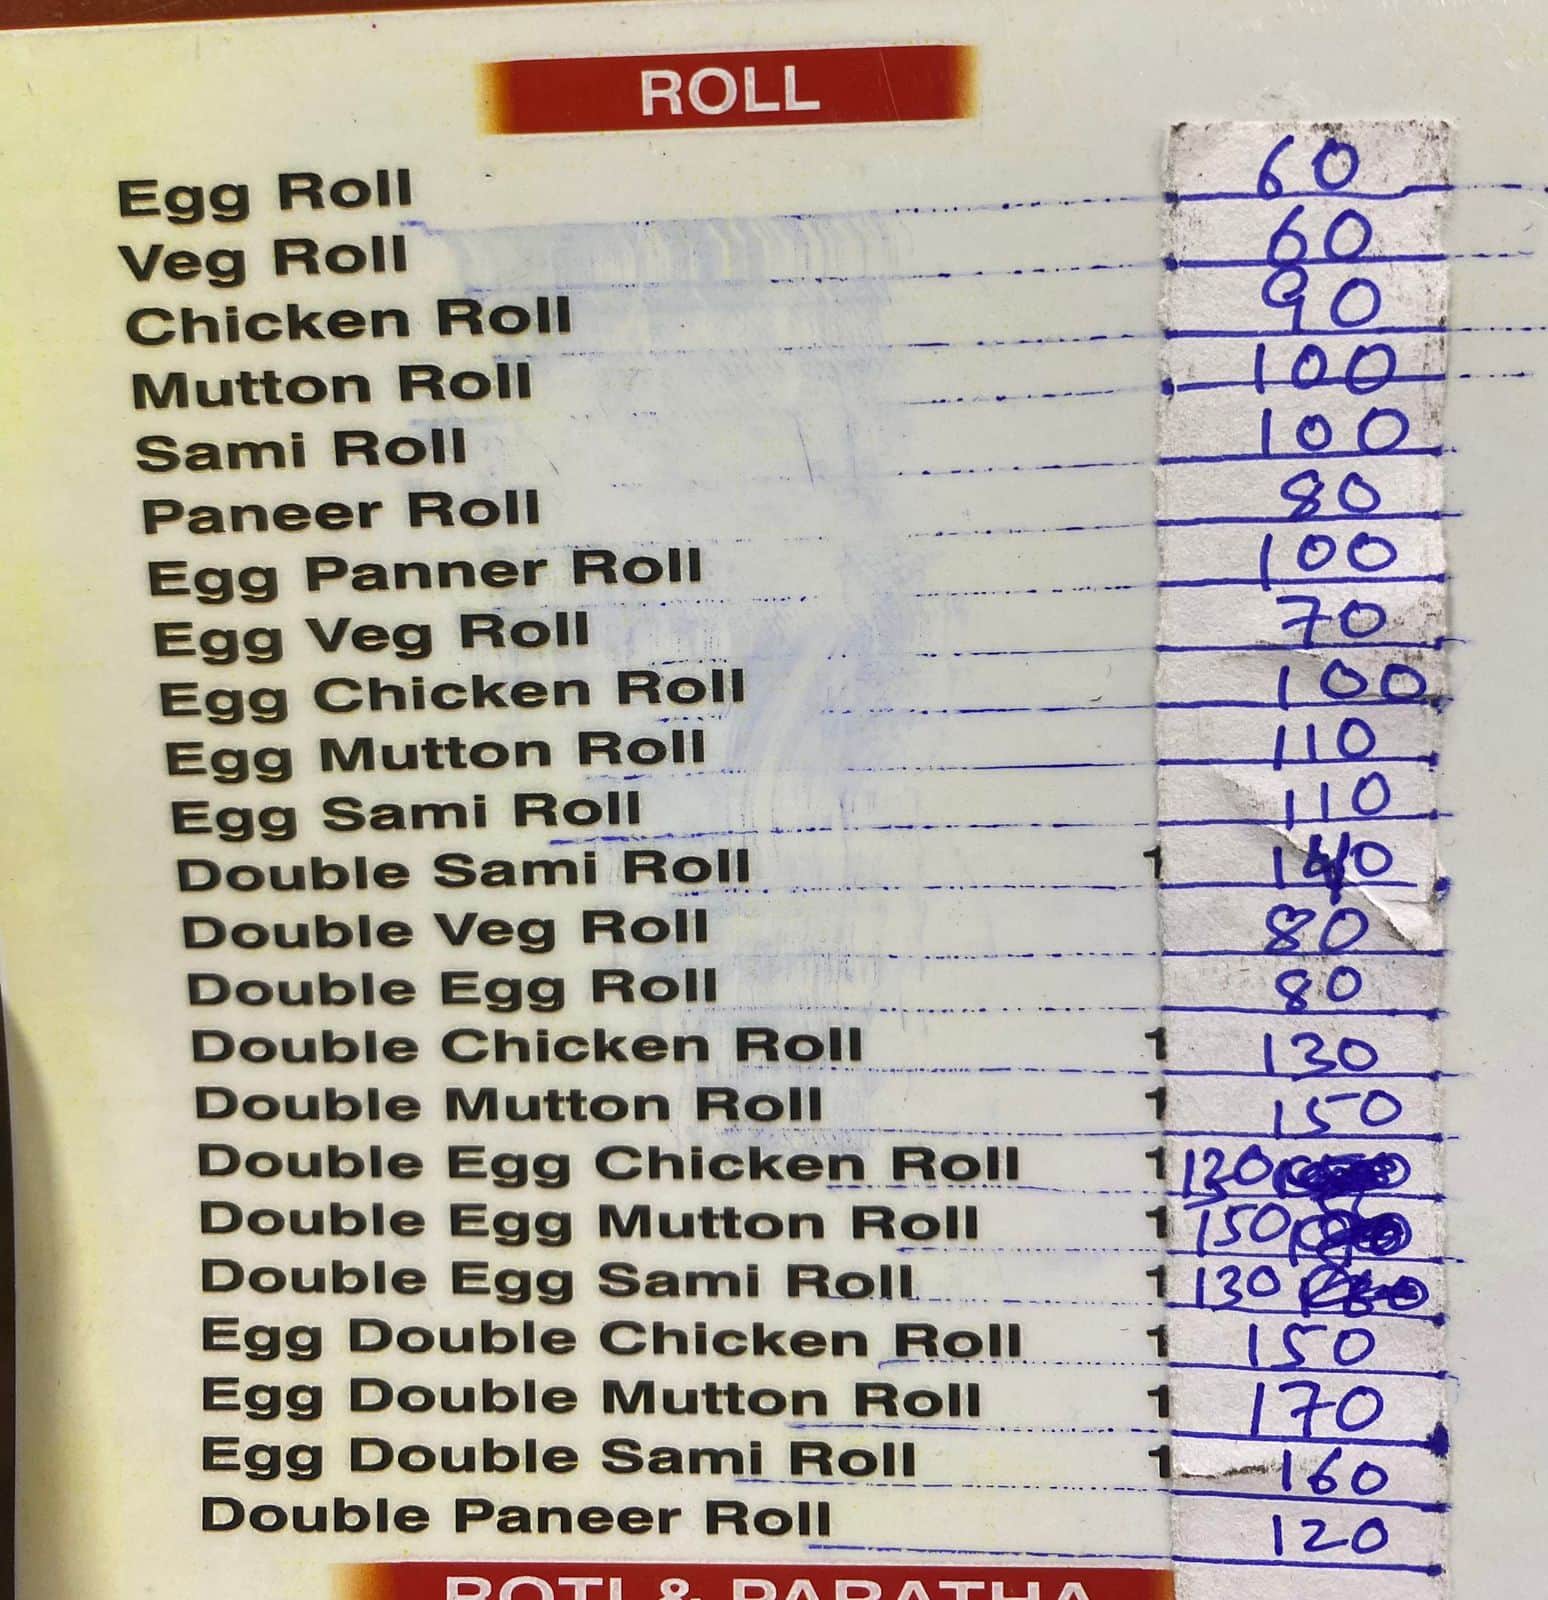 ROLL
Egg Roll 60
Veg Roll 60
Chicken Roll 90
Mutton Roll 100
Sami Roll 100
Paneer Roll 80
Egg Panner Roll 100
Egg Veg Roll 70
Egg Chicken Roll 100
Egg Mutton Roll 110
Egg Sami Roll 110
Double Sami Roll 1 140
Double Veg Roll 80
Double Egg Roll 80
Double Chicken Roll 1 130
Double Mutton Roll 1 150
Double Egg Chicken Roll 1 130
Double Egg Mutton Roll 1 150
Double Egg Sami Roll 1 130
Egg Double Chicken Roll 1 150
Egg Double Mutton Roll 1 170
Egg Double Sami Roll 1 160
Double Paneer Roll 120
ROTI & PARATHA